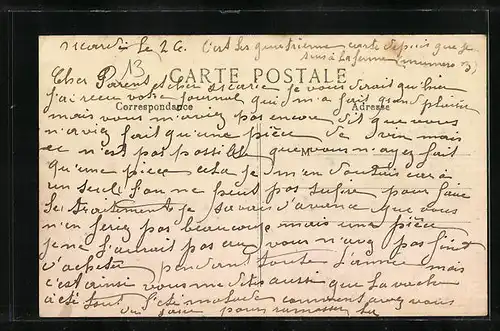 Le 26 C'est les quatrième carte depuis que je
suis à la ferme (numero 3)
13
CARTE POSTALE
Correspondance
Adresse
M
Cher Parent et cher je vous dirait qu'hier
j'ai recu votre journal qui m'a fait grand plaisir
mais vous m'aviez pas encore dit que vous
n'aviez fait qu'une pièce de vin mais
ce n'est pas possible que vous n'ayez fait
qu'une pièce cela je m'en doutais car à
un seul l'on ne peut pas sufire pour faire
le traitement je savais d'avance que vous
n'en feriez pas beaucoup mais une pièce
je ne l'aurait pas cru vous n'avez pas finit
d'acheter pendant toute l'année mais
c'est ainsi vous me dites aussi que la vache
a été tout l'été malade comment avez vous
du faire pour ramasser